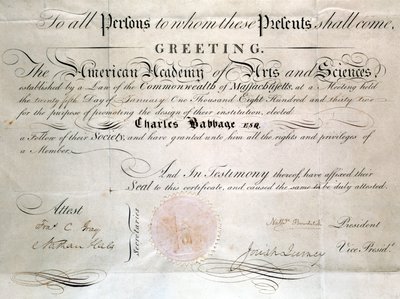 To all Persons to whom these Presents shall come,
GREETING.
The American Academy of Arts and Sciences,
established by a Law of the Commonwealth of Massachusetts, at a Meeting held
the twenty fifth Day of January One Thousand Eight Hundred and thirty two
for the purpose of promoting the design of their institution, elected
Charles Babbage ESQ.
a Fellow of their Society, and have granted unto him all the rights and privileges of
a Member.
And in Testimony thereof have affixed their
Seal to this certificate, and caused the same to be duly attested.
Attest
Fras C. Gray
Nathan Hale
Secretaries
Nathl Bowditch President
Josiah Quincy Vice Presidt.